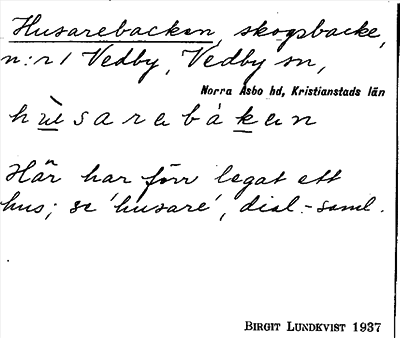 Husarebacken, skogsbacke,
n:r 1 Vedby, Vedby sn,
Norra Åsbo hd, Kristianstads län
hùsarebákan
Här har förr legat ett
hus; se 'husare', dial.-saml.
BIRGIT LUNDKVIST 1937